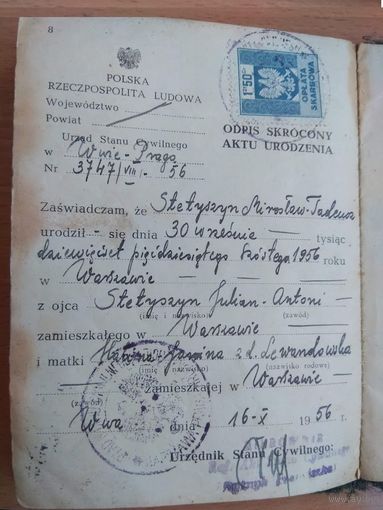 8
POLSKA
RZECZPOSPOLITA LUDOWA
Województwo
Powiat
Urząd Stanu Cywilnego
w W-wie-Praga
Nr 3747/VIII/-56
1 50 zł
OPŁATA
SKARBOWA
ODPIS SKRÓCONY
AKTU URODZENIA
Zaświadczam, że Stetyszyn Mirosław-Tadeusz
urodził - się dnia 30 września - tysiąc
dziewięćset pięćdziesiątego szóstego 1956 roku
w Warszawie
z ojca Stetyszyn Julian-Antoni
(imię i nazwisko) (zawód)
zamieszkałego w Warszawie
i matki Halina-Janina z d. Lewandowska
(imię nazwisko) (nazwisko rodowe)
zamieszkałej w Warszawie
(zawód)
W-wa dnia 16-X 1956 r.
Urzędnik Stanu Cywilnego: